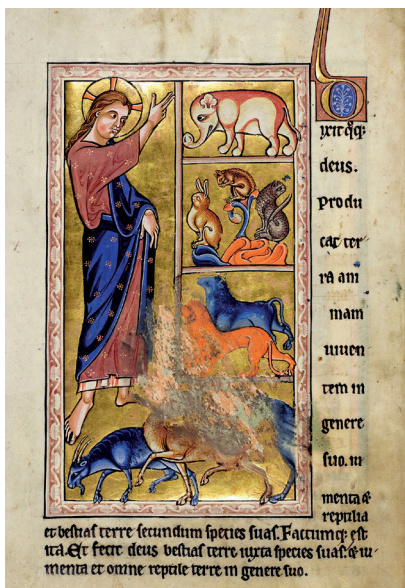 Dixit q̄q;
deus.
Produ
cat ter
ra ani
mam
uiuen
tem in
genere
suo. iu
menta &
reptilia
et bestias terre secundum species suas. Factumq; est
ita. Et fecit deus bestias terre iuxta species suas. & iu-
menta et omne reptile terre in genere suo.